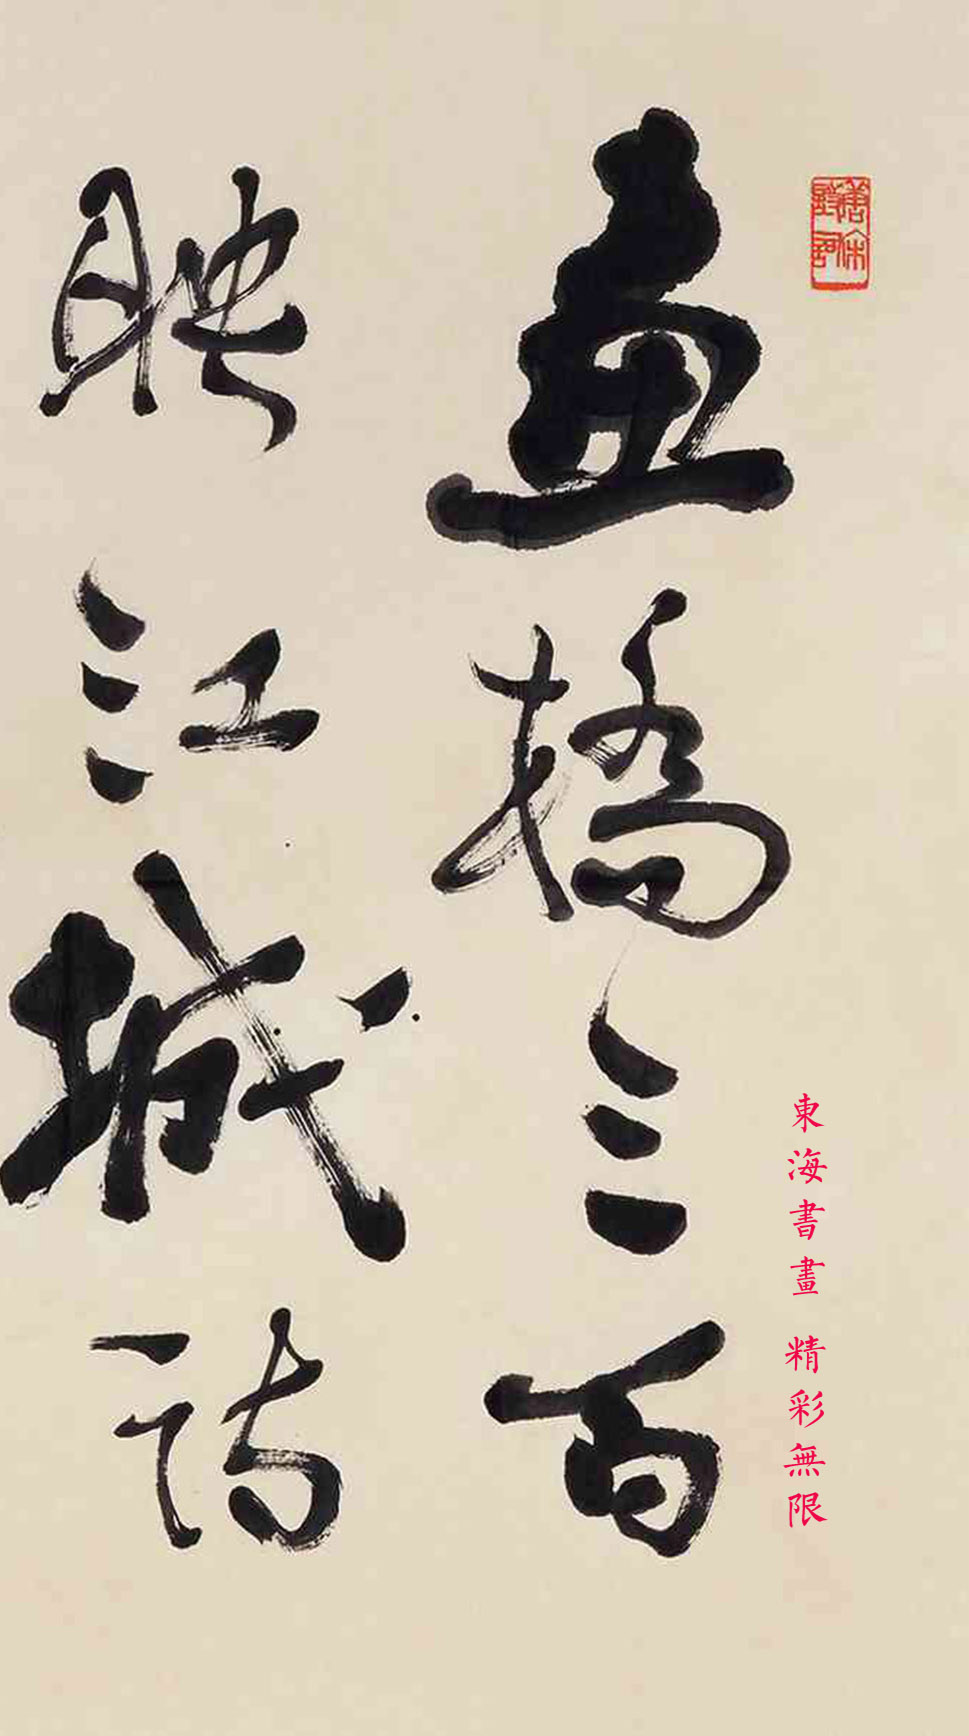 東海書畫 精彩無限
畫橋三百
映江城詩